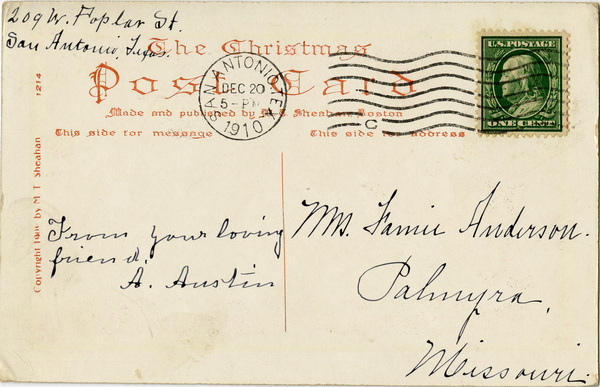 209 W. Poplar St.
San Antonio, Texas.
The Christmas
Post Card
Made and published by M.T. Sheahan, Boston
This side for message
This side for address
1214
Copyright by M T Sheahan
SAN ANTONIO, TEX.
DEC 20
5-PM
1910
C
U.S. POSTAGE
ONE CENT
From your loving
friend.
A. Austin
Mrs. Fannie Anderson.
Palmyra,
Missouri.